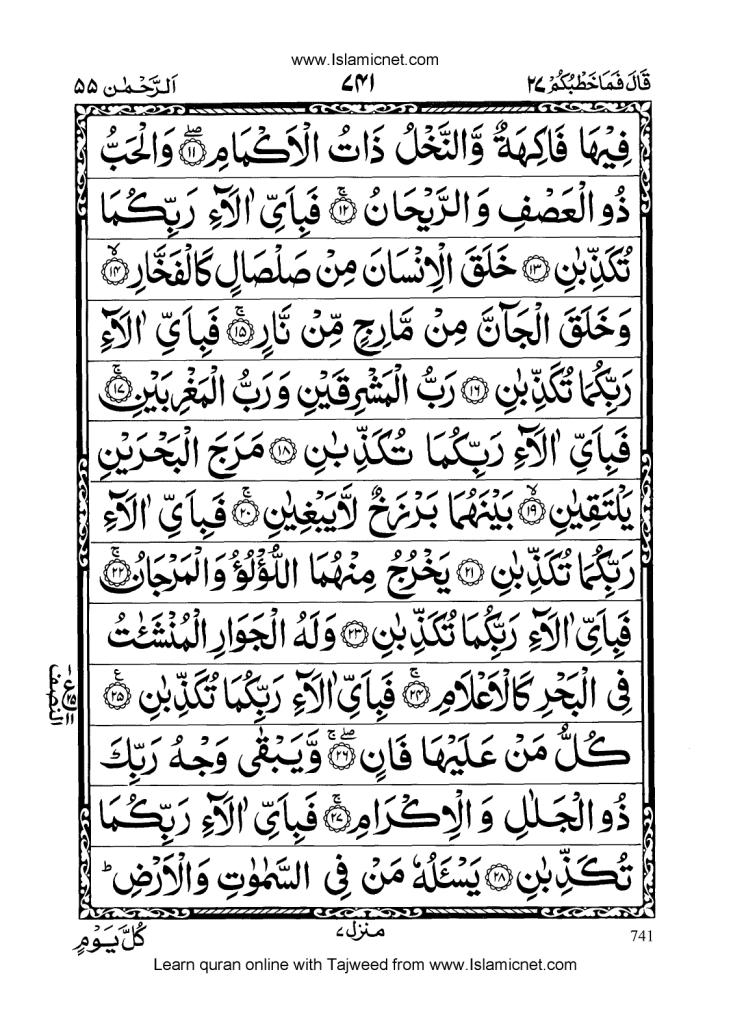 www.Islamicnet.com
قَالَ فَمَا خَطْبُكُمْ ٢٧
٧٤١
اَلرَّحْمٰن ٥٥
فِيْهَا فَاكِهَةٌ وَّالنَّخْلُ ذَاتُ الْاَكْمَامِ ۖ ١١ وَالْحَبُّ
ذُو الْعَصْفِ وَالرَّيْحَانُ ۚ ١٢ فَبِاَيِّ اٰلَآءِ رَبِّكُمَا
تُكَذِّبٰنِ ١٣ خَلَقَ الْاِنْسَانَ مِنْ صَلْصَالٍ كَالْفَخَّارِ ۙ ١٤
وَخَلَقَ الْجَآنَّ مِنْ مَّارِجٍ مِّنْ نَّارٍ ۚ ١٥ فَبِاَيِّ اٰلَآءِ
رَبِّكُمَا تُكَذِّبٰنِ ١٦ رَبُّ الْمَشْرِقَيْنِ وَرَبُّ الْمَغْرِبَيْنِ ۚ ١٧
فَبِاَيِّ اٰلَآءِ رَبِّكُمَا تُكَذِّبٰنِ ١٨ مَرَجَ الْبَحْرَيْنِ
يَلْتَقِيٰنِ ۙ ١٩ بَيْنَهُمَا بَرْزَخٌ لَّا يَبْغِيٰنِ ۚ ٢٠ فَبِاَيِّ اٰلَآءِ
رَبِّكُمَا تُكَذِّبٰنِ ٢١ يَخْرُجُ مِنْهُمَا اللُّؤْلُؤُ وَالْمَرْجَانُ ۚ ٢٢
فَبِاَيِّ اٰلَآءِ رَبِّكُمَا تُكَذِّبٰنِ ٢٣ وَلَهُ الْجَوَارِ الْمُنْشَئٰتُ
فِى الْبَحْرِ كَالْاَعْلَامِ ۚ ٢٤ فَبِاَيِّ اٰلَآءِ رَبِّكُمَا تُكَذِّبٰنِ ٢٥ ع
كُلُّ مَنْ عَلَيْهَا فَانٍ ۖ ۚ ٢٦ وَّيَبْقٰى وَجْهُ رَبِّكَ
ذُو الْجَلٰلِ وَالْاِكْرَامِ ۚ ٢٧ فَبِاَيِّ اٰلَآءِ رَبِّكُمَا
تُكَذِّبٰنِ ٢٨ يَسْئَلُهٗ مَنْ فِى السَّمٰوٰتِ وَالْاَرْضِ ؕ
النصف
741
منزل ٧
كُلَّ يَوْمٍ
Learn quran online with Tajweed from www.Islamicnet.com